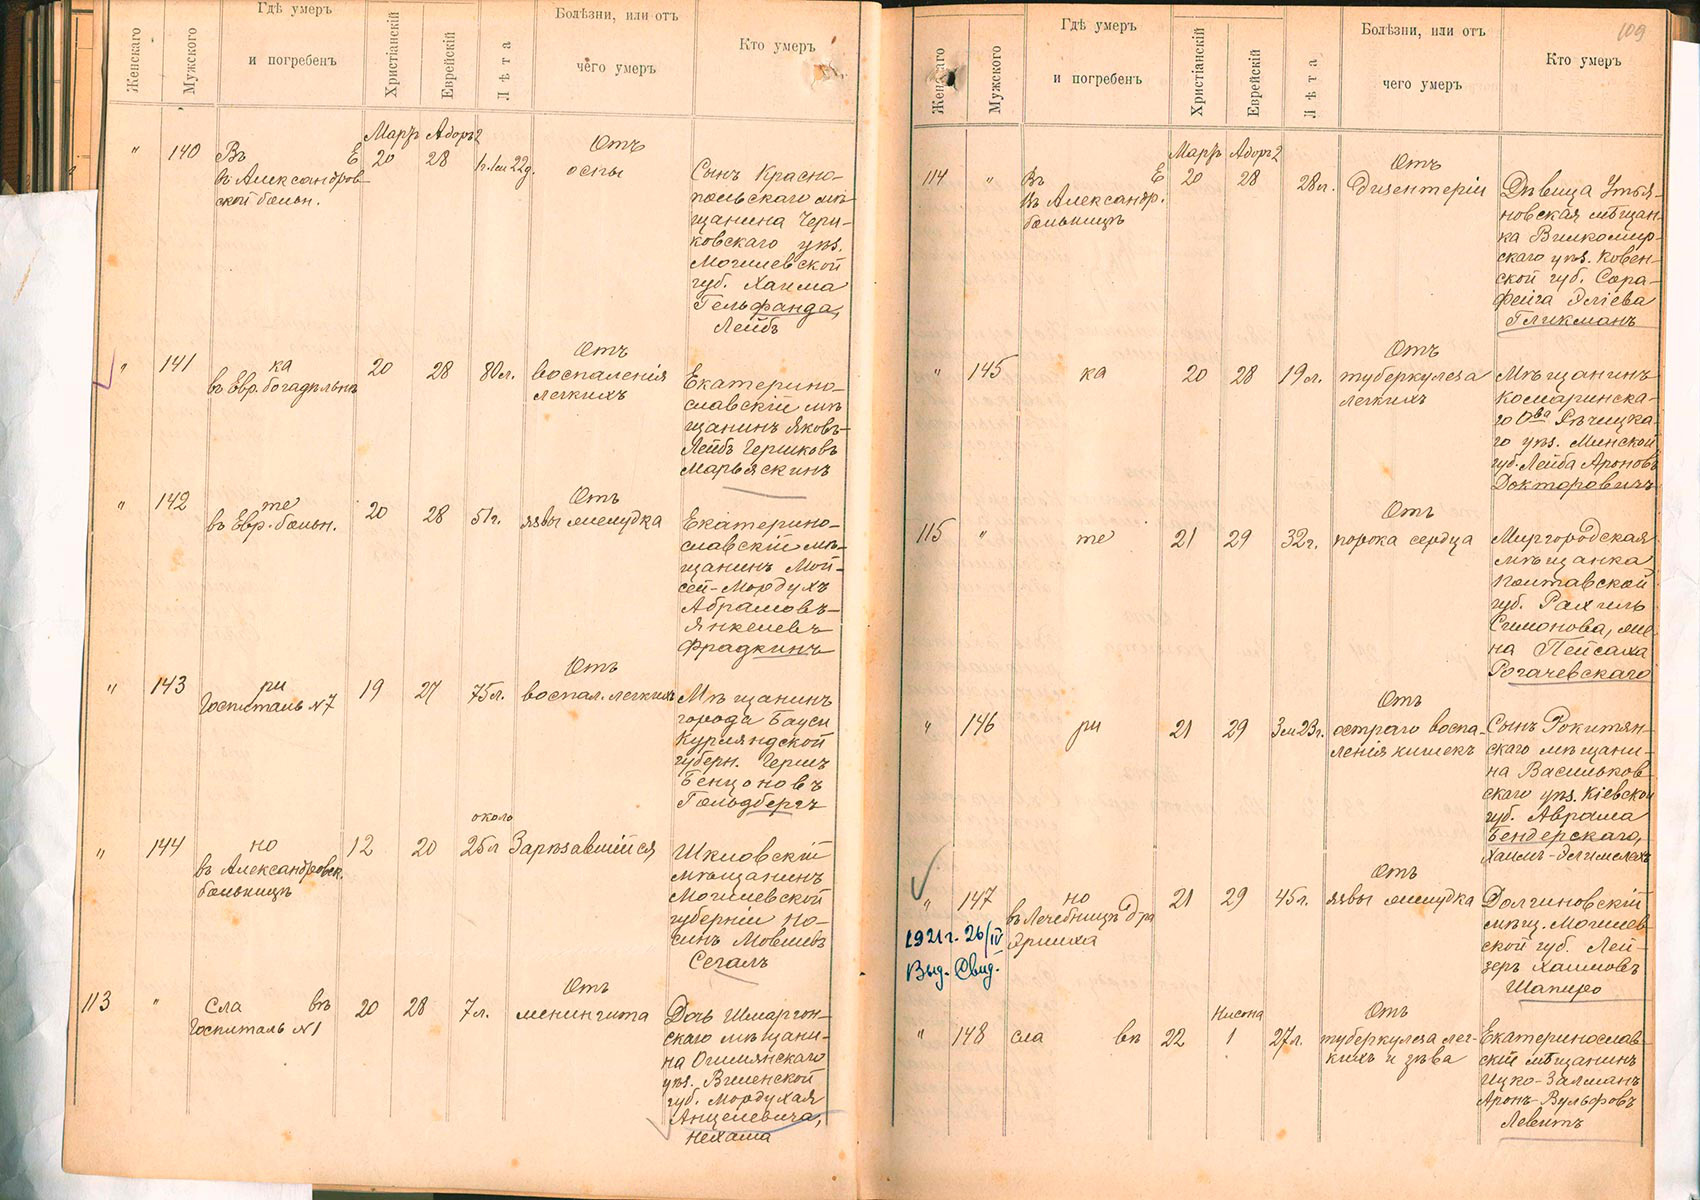 Женскаго
Мужского
Гдѣ умеръ
и погребенъ
Христіанскій
Еврейскій
Лѣта
Болѣзни, или отъ
чего умеръ
Кто умеръ
Мартъ Адоръ 2
" 140 Въ Е
къ Александров-
ской больн.
20 28 1г. 1м 22д.
Отъ
оспы
Сынъ Красно-
польскаго мѣ-
щанина Чери-
ковскаго уѣз.
Могилевской
губ. Хаима
Гельфанда,
Лейбъ
" 141 ка
въ Евр. богадѣльнѣ
20 28 80л.
Отъ
воспаленія
легкихъ
Екатерино-
славскій мѣ-
щанинъ Яковъ-
Лейбъ Гершковъ
Марьяскинъ
" 142 те
въ Евр. больн.
20 28 51г.
Отъ
язвы желудка
Екатерино-
славскій мѣ-
щанинъ Мой-
сей-Мордухъ
Абрамовъ-
Янкелевъ
Фрадкинъ
" 143 ри
Госпиталь №7
19 27 75л.
Отъ
воспал. легкихъ
Мѣщанинъ
города Бауси
Курляндской
губерн. Гершъ
Бенционовъ
Гольдбергъ
" 144 но
въ Александровск.
больницѣ
12 20
около
25л
Зарѣзавшійся
Шкловскій
мѣщанинъ
Могилевской
губерніи Но-
синъ Мовшевъ
Сегалъ
113 " Сла въ
Госпиталь №1
20 28 7л.
Отъ
менингита
Дочь Шмаргон-
скаго мѣщани-
на Ошмянскаго
уѣз. Виленской
губ. Мордухая
Анцелевича,
Нехама
109
Женскаго
Мужского
Гдѣ умеръ
и погребенъ
Христіанскій
Еврейскій
Лѣта
Болѣзни, или отъ
чего умеръ
Кто умеръ
Мартъ Адоръ 2
114 " Въ Е
Въ Александр.
больницѣ
20 28 28л.
Отъ
дизентеріи
Дѣвица Утья-
новская мѣщан-
ка Вилкомир-
скаго уѣз. Ковен-
ской губ. Сора-
Фейга Эліева
Гликманъ
" 145 ка
20 28 19л.
Отъ
туберкулеза
легкихъ
Мѣщанинъ
Комаринска-
го Ова Рѣчицка-
го уѣз. Минской
губ. Лейба Ароновъ
Докторовичъ
115 " те
21 29 32г.
Отъ
порока сердца
Миргородская
мѣщанка
Полтавской
губ. Рахиль
Симонова, же-
на Пейсаха
Рогачевскаго
" 146 ри
21 29 3м 23г.
Отъ
остраго воспа-
ленія кишекъ
Сынъ Рокитян-
скаго мѣщани-
на Васильков-
скаго уѣз. Кіевской
губ. Аврама
Бендерскаго,
Хаимъ-Элимелехъ
" 147 но
въ Лечебницѣ Д-ра
21 29 45л.
Отъ
язвы желудка
Долгиновскій
мѣщ. Могилев-
ской губ. Лей-
зеръ Хаимовъ
Шапиро
1921г. 26/IV
Выд. Свид.
" 148 сла въ
22
Нисона
1 27л.
Отъ
туберкулеза лег-
кихъ и зѣва
Екатеринослав-
скій мѣщанинъ
Ицко-Залманъ
Аронъ-Вульфовъ
Левитъ